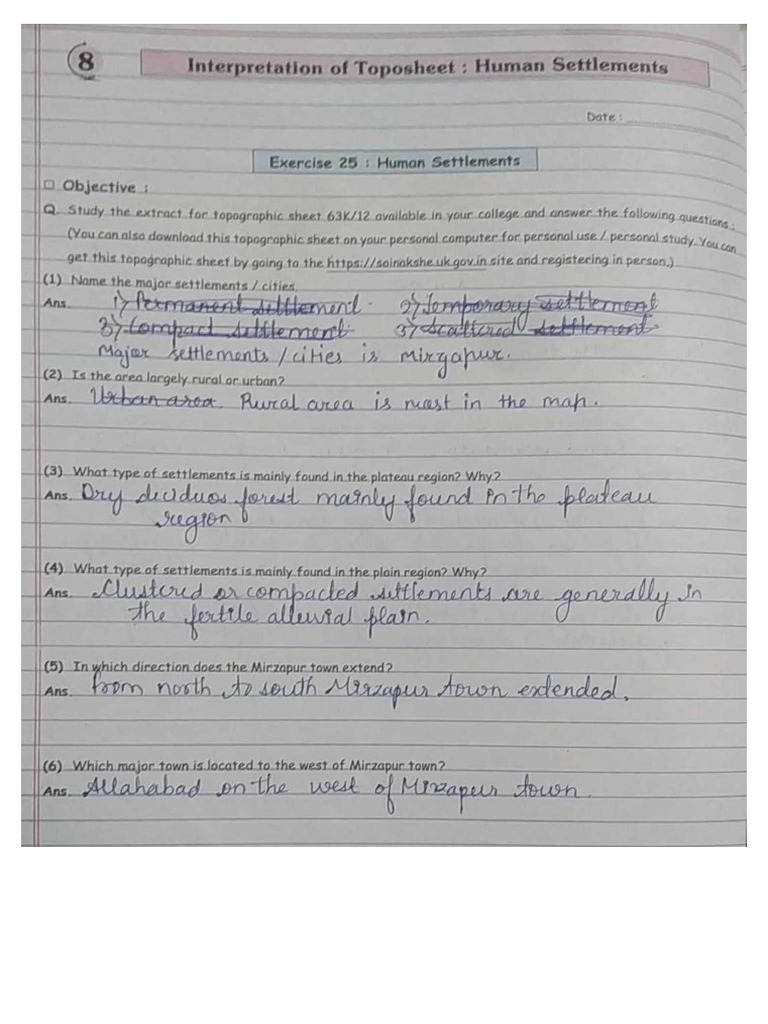 8
Interpretation of Toposheet : Human Settlements
Date :
Exercise 25 : Human Settlements
□ Objective :
Q. Study the extract for topographic sheet 63K/12 available in your college and answer the following questions :
(You can also download this topographic sheet on your personal computer for personal use / personal study. You can
get this topographic sheet by going to the https://soinakshe.uk.gov.in site and registering in person.)
(1) Name the major settlements / cities.
Ans. 1) Permanent settlement. 2) Temporary settlement
3) Compact settlement. 3) Scattered settlement
Major settlements / cities is Mirzapur.
(2) Is the area largely rural or urban?
Ans. Urban area. Rural area is mast in the map.
(3) What type of settlements is mainly found in the plateau region? Why?
Ans. Dry deciduos forest mainly found in the plateau
region
(4) What type of settlements is mainly found in the plain region? Why?
Ans. Clustered or compacted settlements are generally in
the fertile alluvial plain.
(5) In which direction does the Mirzapur town extend?
Ans. from north to south Mirzapur town extended.
(6) Which major town is located to the west of Mirzapur town?
Ans. Allahabad on the west of Mirzapur town.